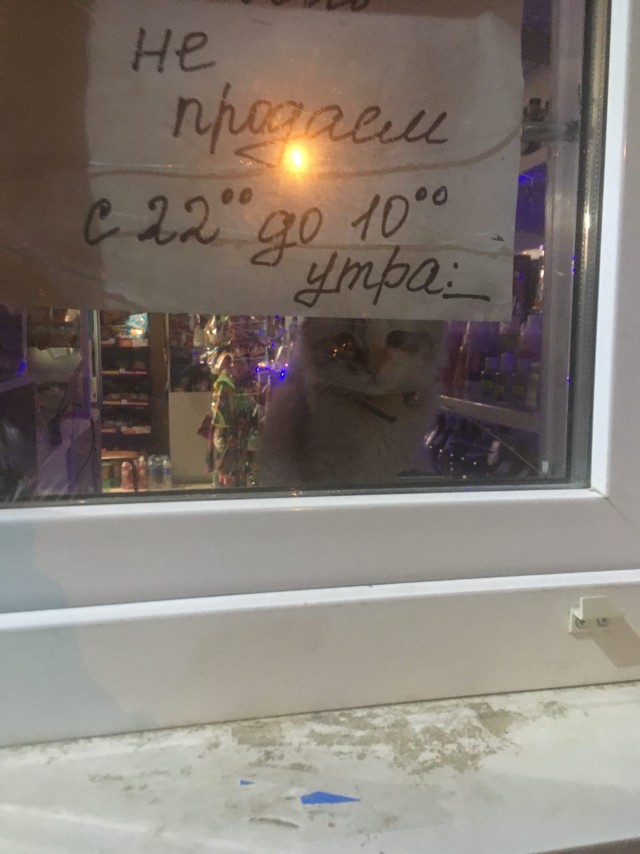 не
продаем
с 22°° до 10°°
утра: